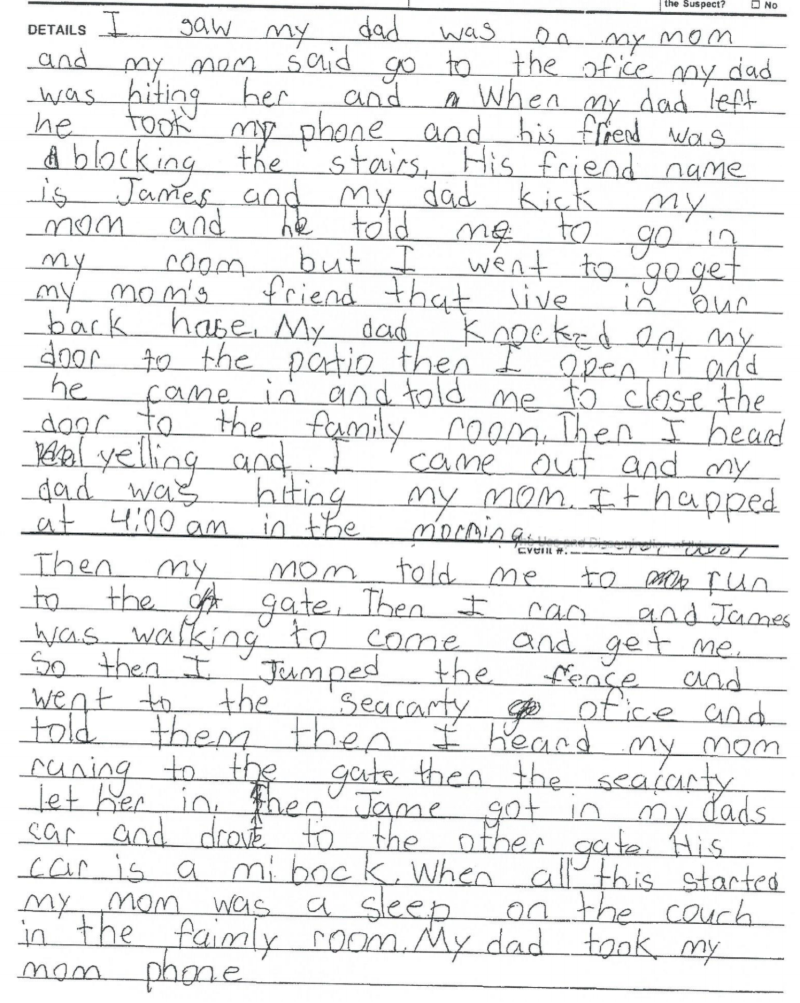 the Suspect? ☐ No
DETAILS I saw my dad was on my mom
and my mom said go to the ofice my dad
was hiting her and When my dad left
he took my phone and his friend was
blocking the stairs, His friend name
is James and my dad kick my
mom and he told me to go in
my room but I went to go get
my mom's friend that live in our
back hase. My dad knocked on my
door to the patio then I open it and
he came in and told me to close the
door to the family room. Then I heard
yelling and I came out and my
dad was hiting my mom. It happed
at 4:00 am in the morning.
Event #:
Then my mom told me to run
to the gate. Then I ran and James
was walking to come and get me.
So then I jumped the fence and
went to the seacarty ofice and
told them then I heard my mom
runing to the gate then the seacarty
let her in. Then Jame got in my dads
car and drove to the other gate. His
car is a mi bock. When all this started
my mom was a sleep on the couch
in the faimly room. My dad took my
mom phone